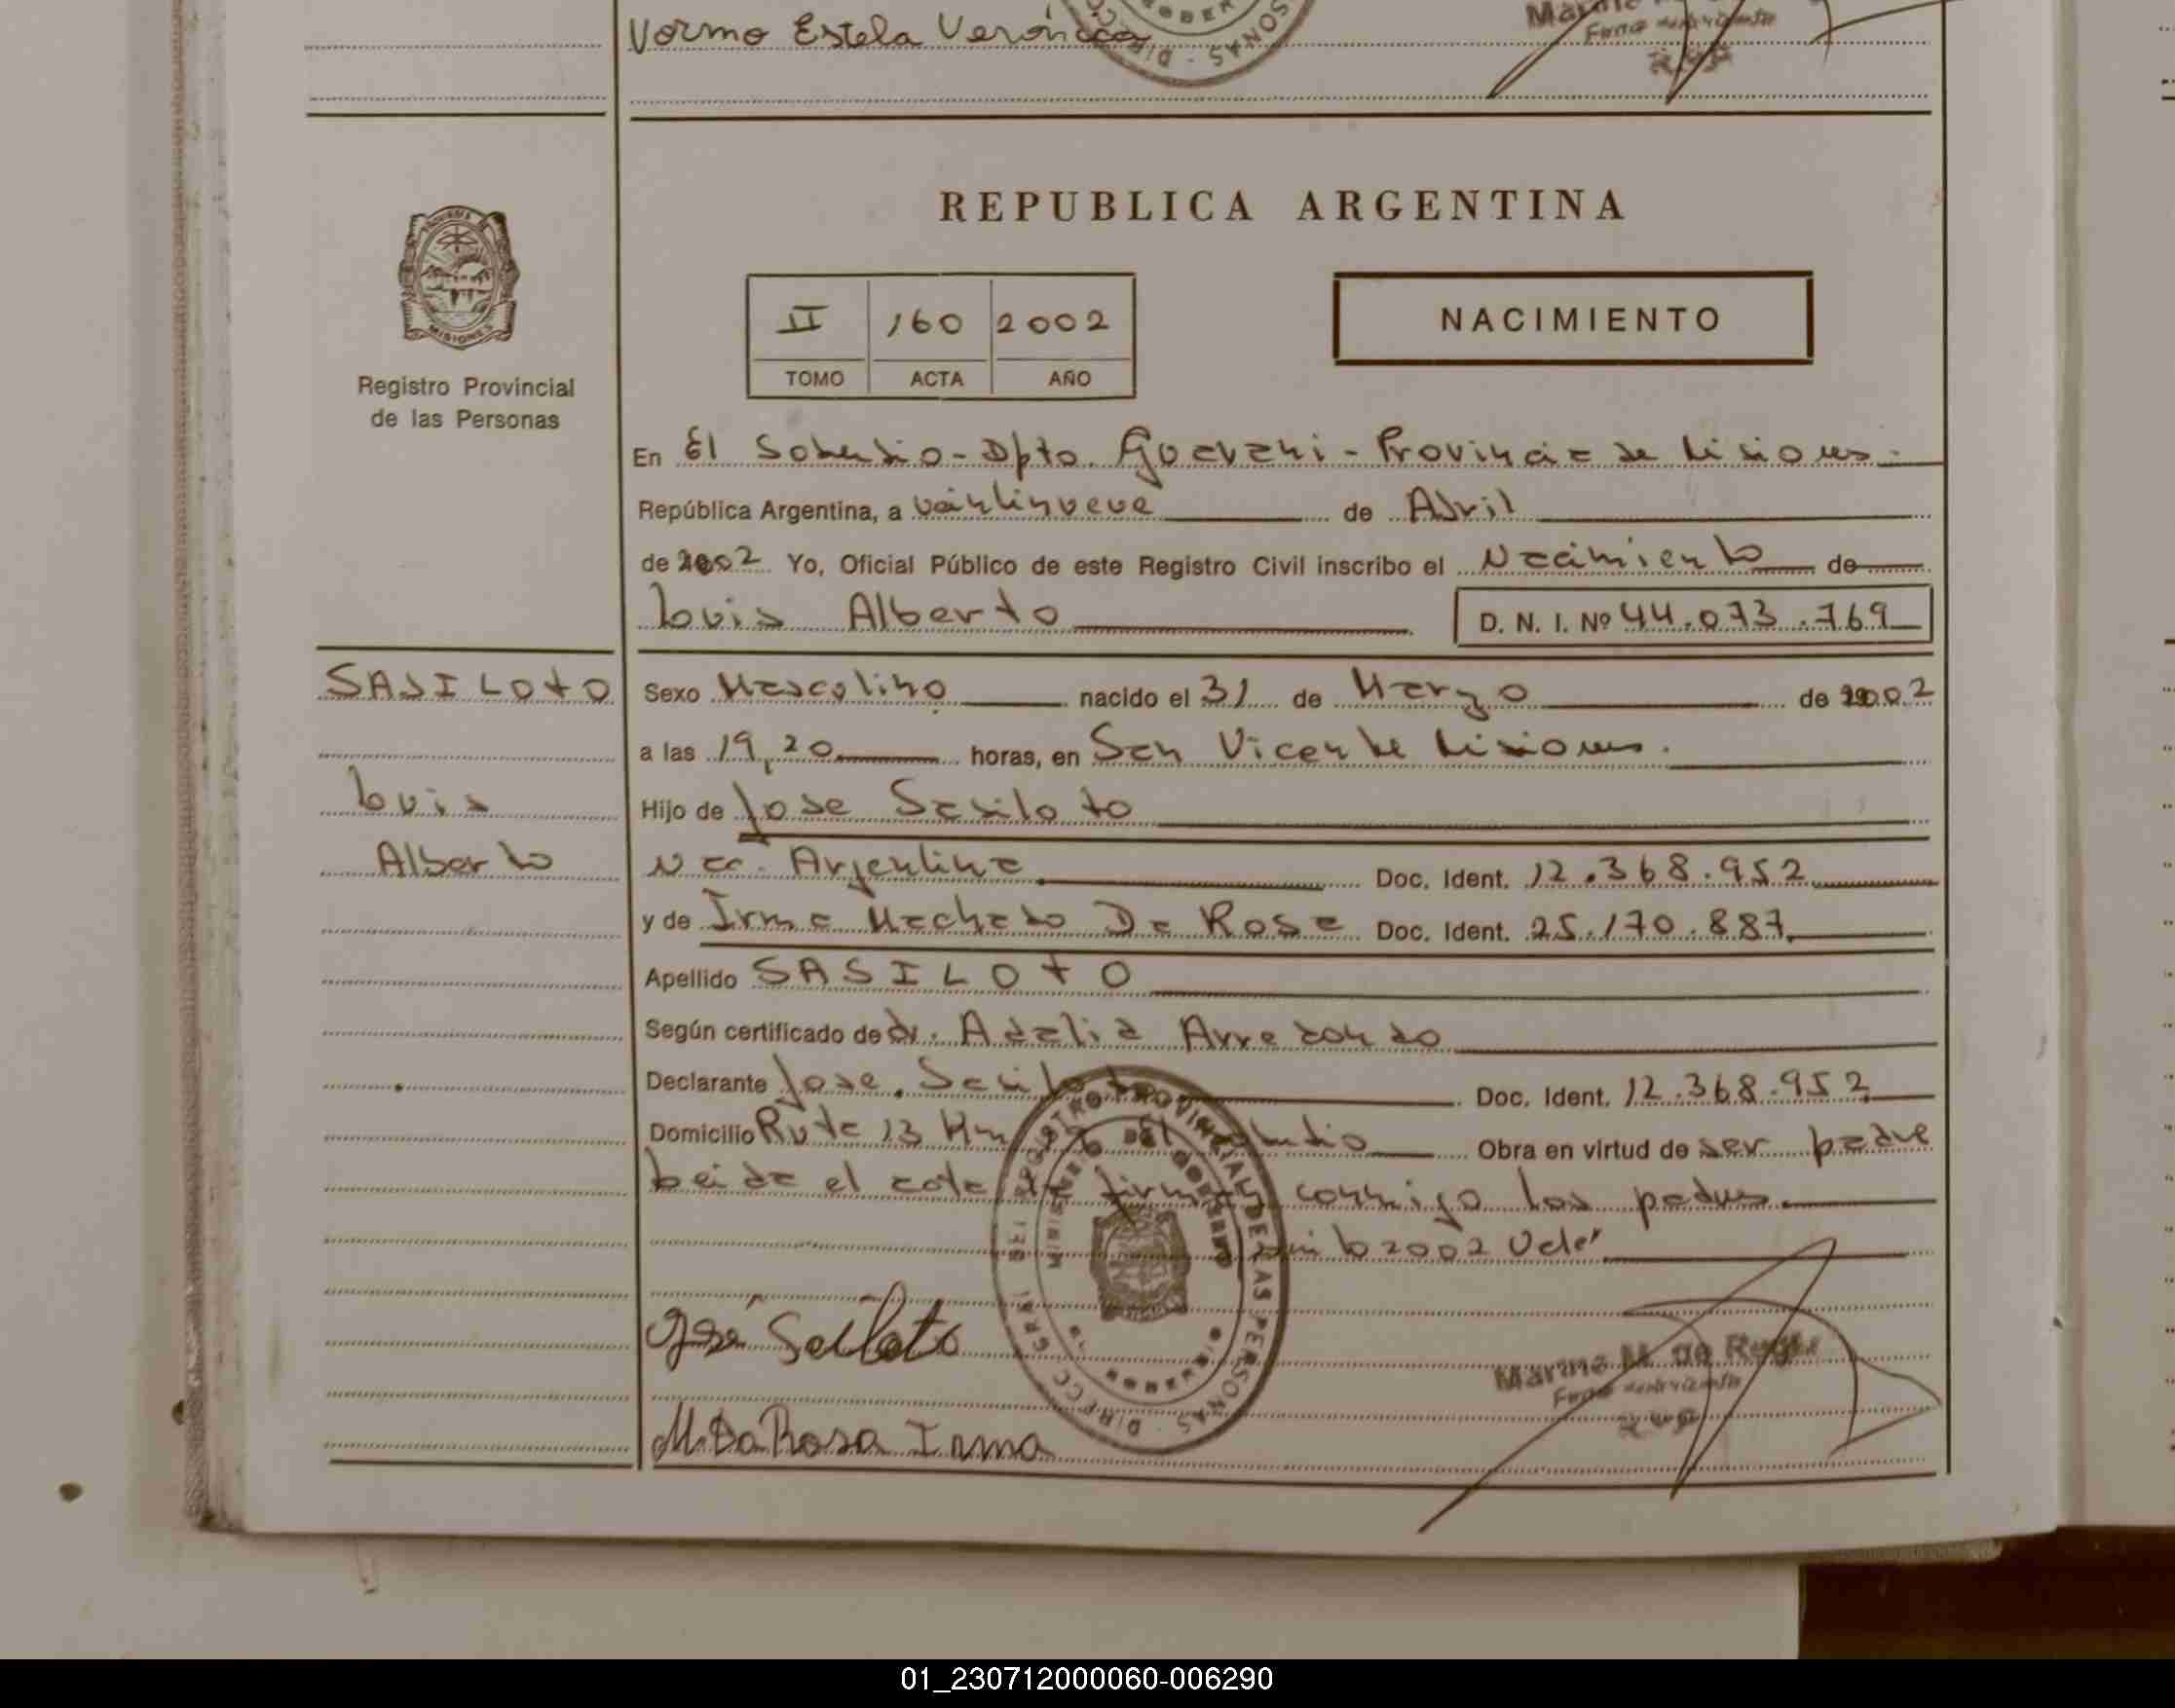 Vormo Estela Verónica
REPUBLICA ARGENTINA
II 160 2002
TOMO ACTA AÑO
NACIMIENTO
Registro Provincial
de las Personas
En El Soberbio - Dpto. Guarani - Provincia de Misiones.
República Argentina, a veintinueve de Abril
de 2002 Yo, Oficial Público de este Registro Civil inscribo el Nacimiento de
Luis Alberto D. N. I. Nº 44.073.769
SASILOTO
Luis
Alberto
Sexo Masculino nacido el 31 de Marzo de 2002
a las 19,20 horas, en San Vicente Misiones.
Hijo de Jose Sasiloto
Nac. Argentina Doc. Ident. 12.368.952
y de Irma Machado Da Rosa Doc. Ident. 25.170.887
Apellido SASILOTO
Según certificado de dr. Adalid Arredondo
Declarante Jose Sasiloto Doc. Ident. 12.368.952
Domicilio Ruta 13 Km El Soberbio Obra en virtud de ser padre
Leida el acta la firman conmigo los padres.
2002 Vale
REGISTRO PROVINCIAL DE LAS PERSONAS
MINISTERIO DE GOBIERNO
José
M. Da Rosa Irma
Marina M. de
01_230712000060-006290